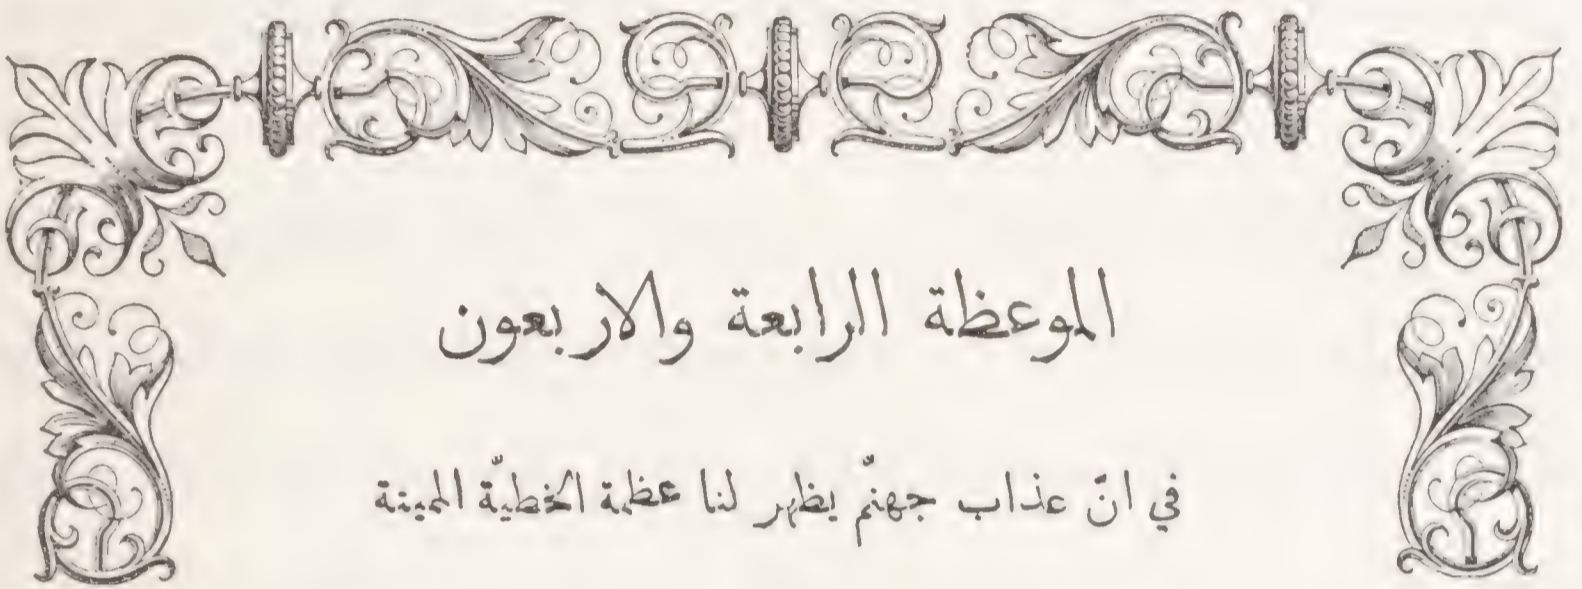 الموعظة الرابعة والاربعون
في انّ عذاب جهنّم يظهر لنا عظمة الخطيّة المميتة